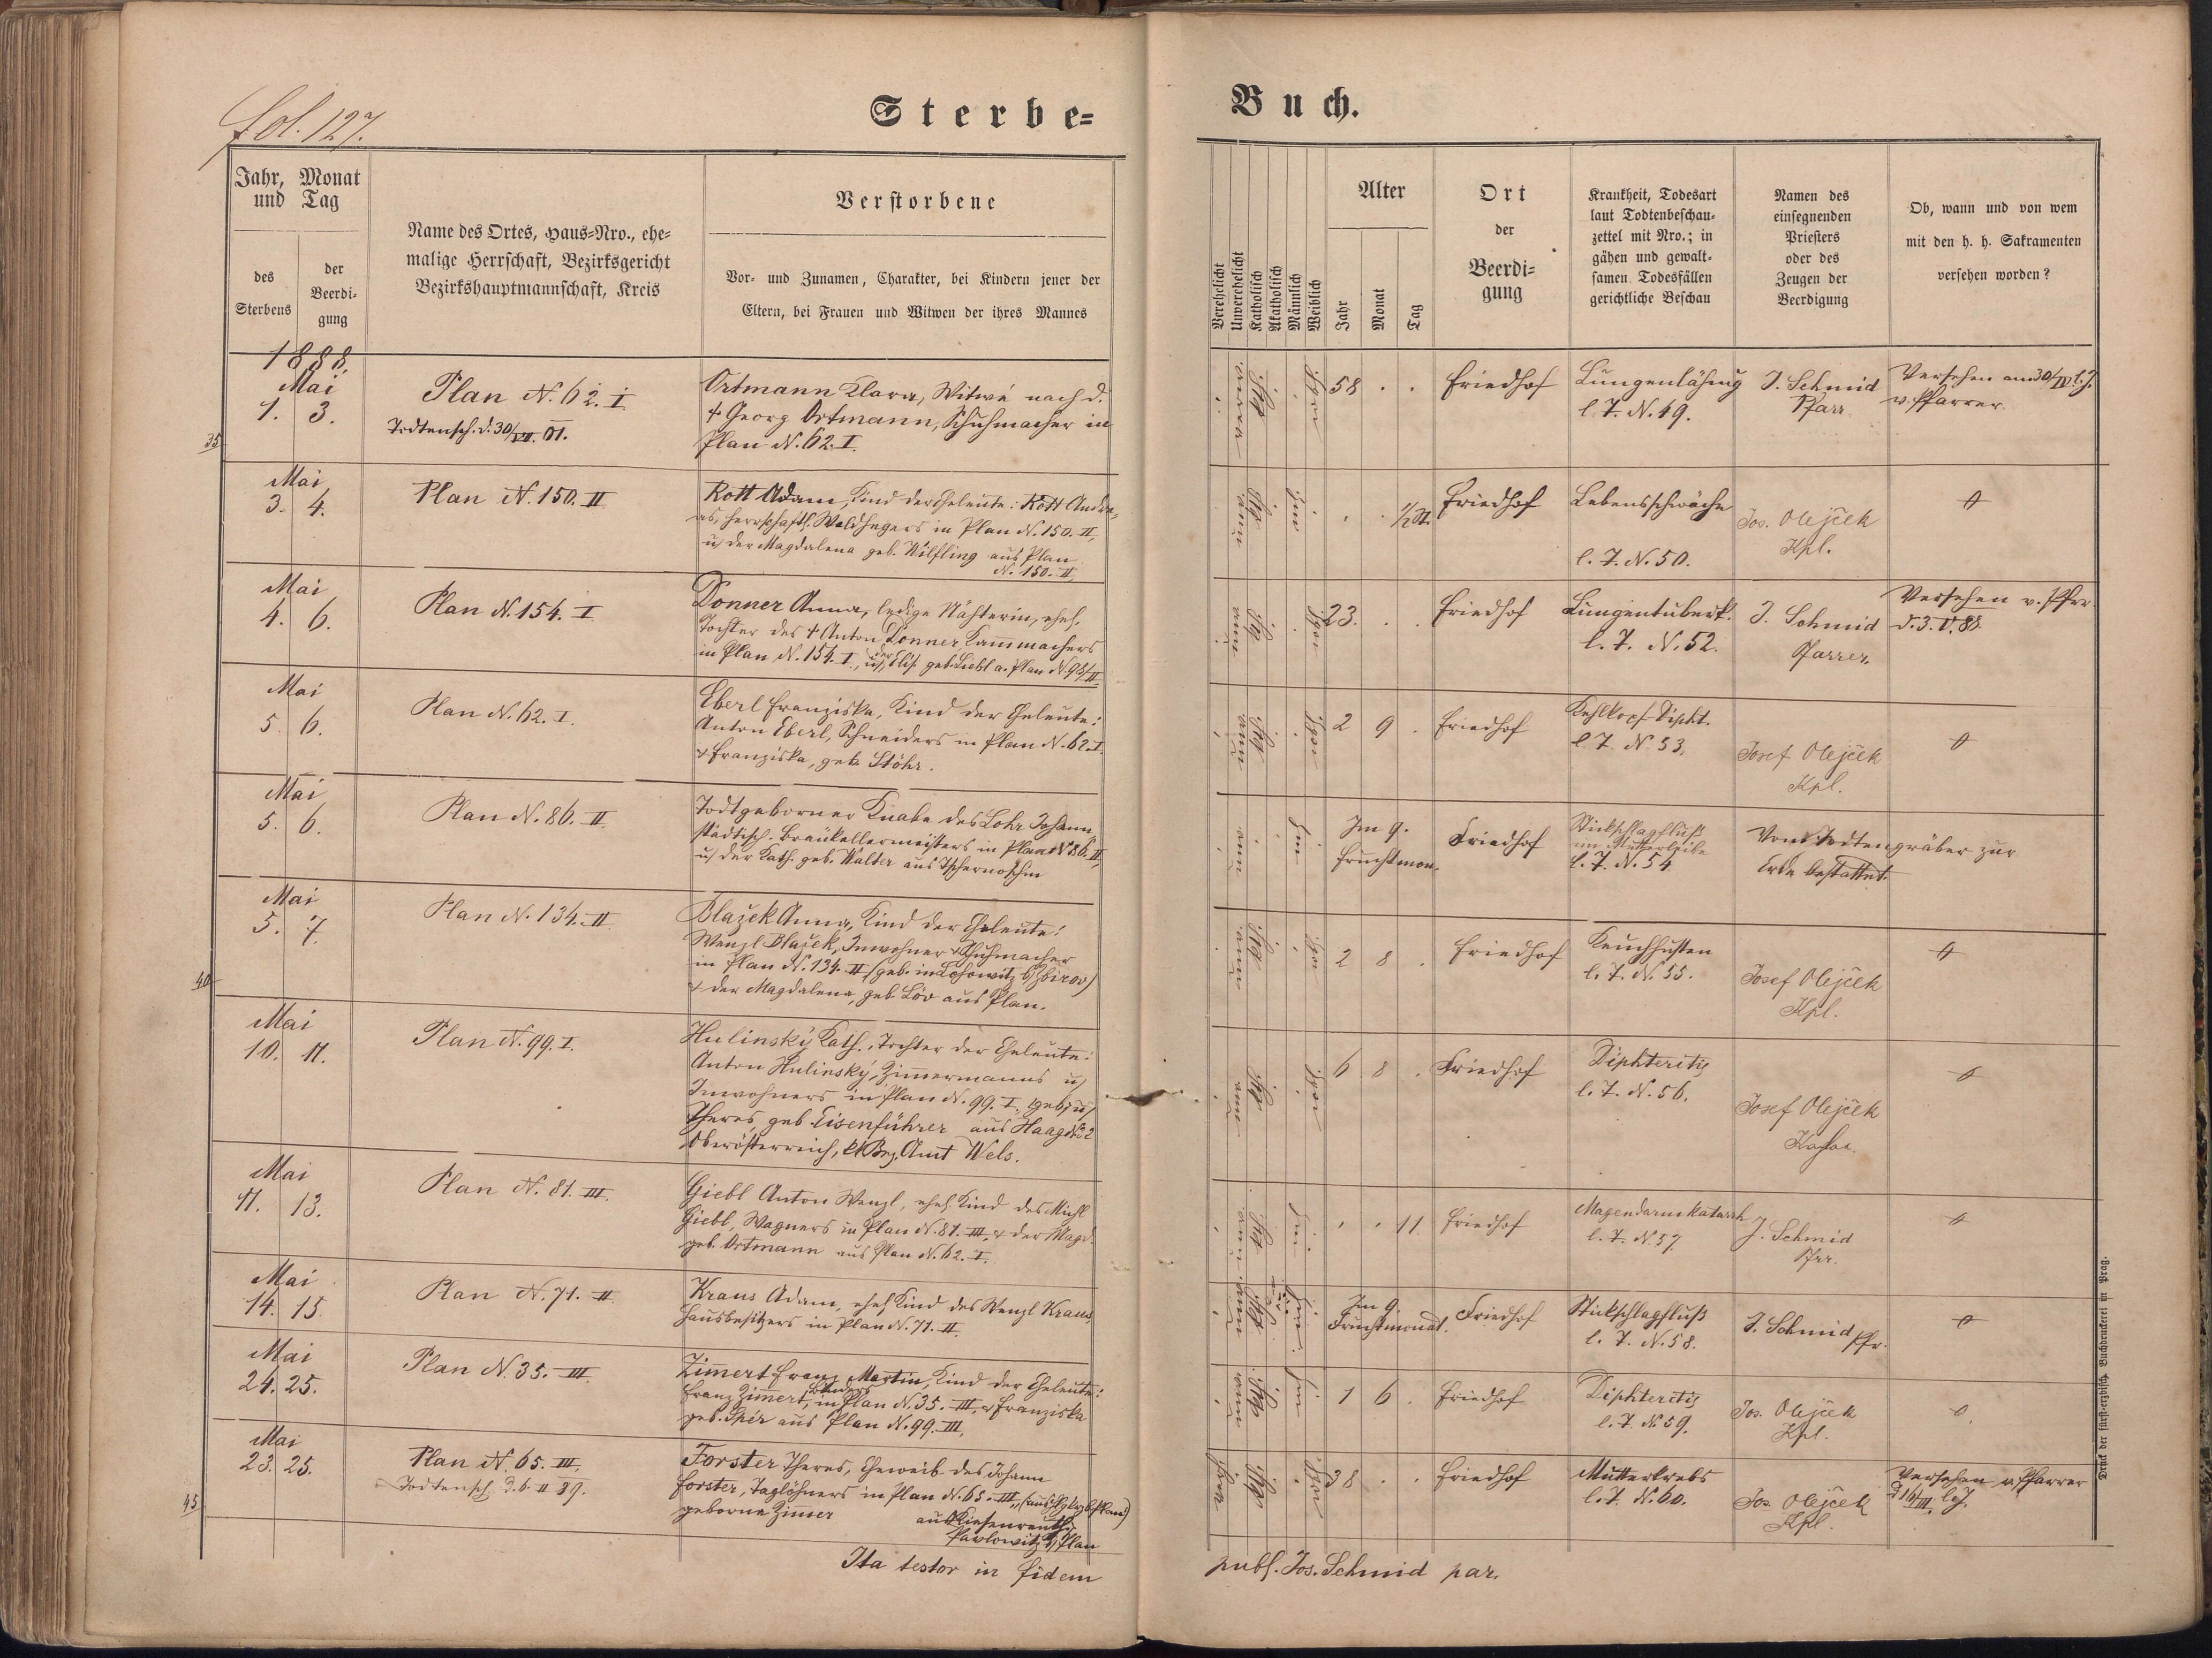 fol. 127.
Sterbe=
Jahr, Monat
und Tag
des
Sterbens
der
Beerdi-
gung
Name des Ortes, Haus=Nro., ehe-
malige Herrschaft, Bezirksgericht
Bezirkshauptmannschaft, Kreis
Verstorbene
Vor= und Zunamen, Charakter, bei Kindern jener der
Eltern, bei Frauen und Witwen der ihres Mannes
1888.
Mai
1. 3.
35
Plan N. 62. I
Todtensch. d. 30/VII. 01.
Ortmann Klara, Witwe nach d.
† Georg Ortmann, Schuhmacher in
Plan N. 62. I.
Mai
3. 4.
Plan N. 150. II
Rott Adam, Kind der Eheleute: Rott Andre-
as, herrschaftl. Waldhegers in Plan N. 150. II,
u. der Magdalena geb. Wilfling aus Plan
N. 150. II
Mai
4. 6.
Plan N. 154. I
Donner Anna, ledige Nähterin, ehel.
Tochter des † Anton Donner, Kammachers
in Plan N. 154. I., u. der Elis. geb. Liebl a. Plan N. 95/II
Mai
5. 6.
Plan N. 62. I.
Eberl Franziska, Kind der Eheleute:
Anton Eberl, Schneiders in Plan N. 62. I.
& Franziska, geb. Stöhr.
Mai
5. 6.
Plan N. 86. II
Todtgeborner Knabe des Lohr Johann,
städtisch. Braukellermeisters in Plan N 86. II,
u. der Kath. geb. Walter aus Tschernoschin
Mai
5. 7.
40
Plan N. 134. II
Blažek Anna, Kind der Eheleute:
Wenzl Blažek, Inwohner & Schuhmacher
in Plan N. 134. II (geb. in Lohowitz b/ Zbirov)
& der Magdalena, geb. Löv aus Plan.
Mai
10. 11.
Plan N. 99. I.
Hulinský Kath., Tochter der Eheleute:
Anton Hulinský, Zimmermanns u.
Inwohners in Plan N. 99. I.,
Theres, geb. Eisenführer aus Haag N. 2
Oberösterreich, Bez. Amt Wels.
Mai
11. 13.
Plan N. 81. III.
Giebl Anton Wenzl, ehel. Kind des Michl
Giebl, Wagners in Plan N. 81. III. & der Magd.
geb. Ortmann aus Plan N. 62. I.
Mai
14. 15.
Plan N. 71. II.
Kraus Adam, ehel. Kind des Wenzl Kraus,
Hausbesitzers in Plan N. 71. II.
Mai
24. 25.
Plan N. 35. III.
Zimert Franz Martin, Kind der Eheleute:
Franz Zimert, in Plan N. 35. III. & Franziska
geb. Spér aus Plan N. 99. III.
Mai
23. 25.
45
Plan N. 65. III.
Todtensch. d. 6. II 89.
Forster Theres, Eheweib des Johann
Forster, Taglöhners in Plan N. 65. III.,
geborne Zimmer
Pawlowitz b/ Plan
Ita testor in fidem
Buch.
Verehelicht
Unverehelicht
Katholisch
Akatholisch
Männlich
Weiblich
Alter
Jahr
Monat
Tag
Ort
der
Beerdi=
gung
Krankheit, Todesart
laut Todtenbeschau-
zettel mit Nro.; in
gähen und gewalt-
samen Todesfällen
gerichtliche Beschau
Namen des
einsegnenden
Priesters
oder des
Zeugen der
Beerdigung
Ob, wann und von wem
mit den h. h. Sakramenten
versehen worden?
58 . .
Friedhof
Lungenlähmg
l. Z. N. 49.
J. Schmid
Pfarr.
Versehen am 30/IV. l. J.
v. Pfarrer.
. . 1/2 St.
Friedhof
Lebensschwäche
l. Z. N. 50.
Jos. Olejček
Kpl.
23. . .
Friedhof
Lungentuberk.
l. Z. N. 52.
J. Schmid
Pfarrer.
Versehen v. Pfrr.
d. 3. V. 88.
2 9 .
Friedhof
Kehlkopf Dipht.
l. Z. N. 53.
Josef Olejček
Kpl.
Im 9.
Fruchtmon.
Friedhof
Stickschlagfluß
im Mutterleibe
l. Z. N. 54
Vom Todtengräber zur
Erde bestattet.
2 8 .
Friedhof
Keuchhusten
l. Z. N. 55.
Josef Olejček
Kpl.
6 8 .
Friedhof
Diphteritis
l. Z. N. 56.
Josef Olejček
Kaplan.
. . 11
Friedhof
Magendarmkatarrh
l. Z. N. 57
J. Schmid
Pfrr.
Im 9.
Fruchtmonat.
Friedhof
Stickschlagfluß
l. Z. N. 58.
J. Schmid Pfr.
1 6 .
Friedhof
Diphteritis
l. Z. N. 59.
Jos. Olejček
Kpl.
38 . .
Friedhof
Mutterkrebs
l. Z. N. 60.
Jos. Olejček
Kpl.
Versehen v. Pfarrer
d 16/III. l. J.
publ. Jos. Schmid par.
Druck der fürst=erzbisch. Buchdruckerei in Prag.